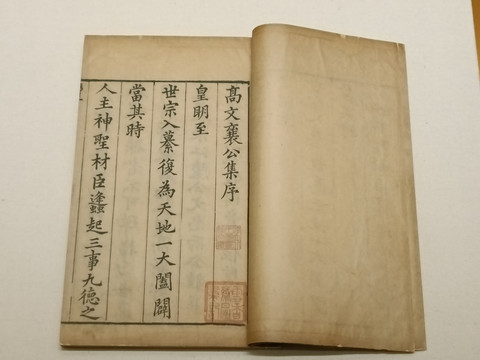 髙文襄公集序
皇明至
世宗入纂復為天地一大闔闢
當其時
人主神聖材臣𧒒起三事九德之